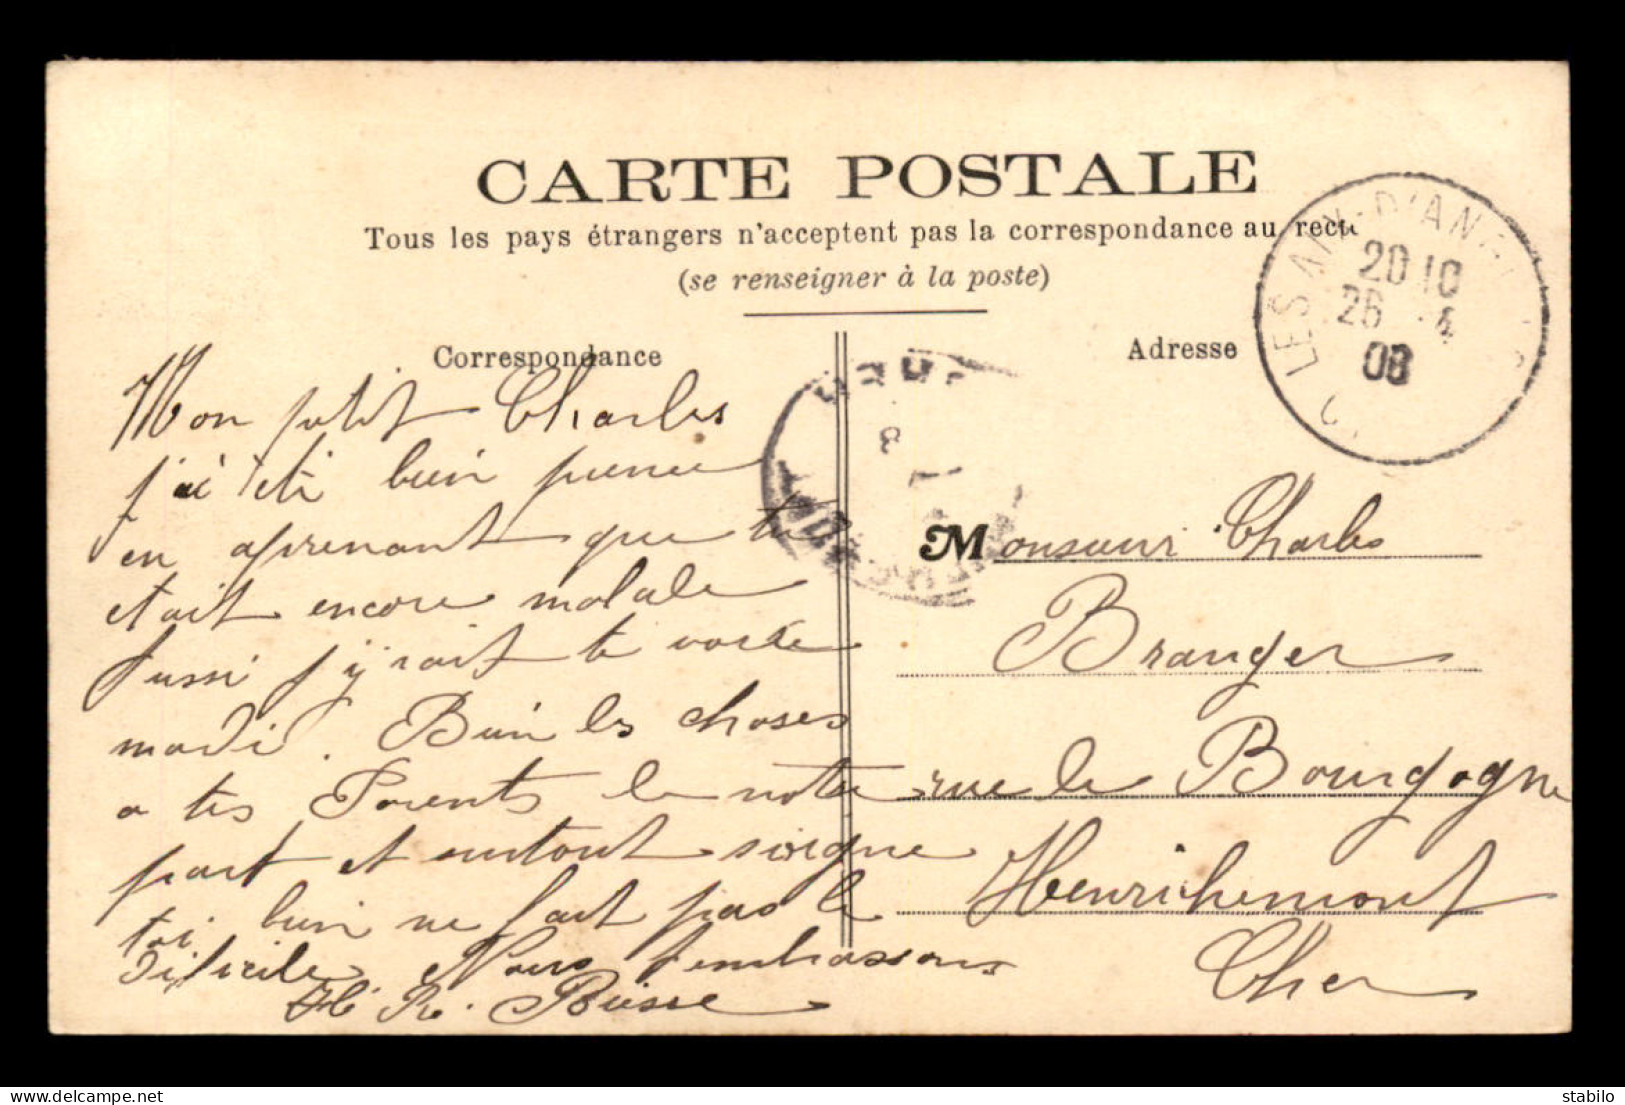 CARTE POSTALE
Tous les pays étrangers n'acceptent pas la correspondance au recto
(se renseigner à la poste)
Correspondance
Adresse
LES AIX-D'ANG
20 10
26 4
08
Mon petit Charles
j'ai été bien peinee
en aprenant que tu
etait encore malade
aussi j'y rait te voir
mardi. Bien les choses
a tes Parents de notre
part et surtout soigne
toi bien ne fait pas le
dificile Nous t'embrassons
Monsieur Charles
Branger
rue de Bourgogne
Henrichemont
Cher
delcampe.net
stabilo